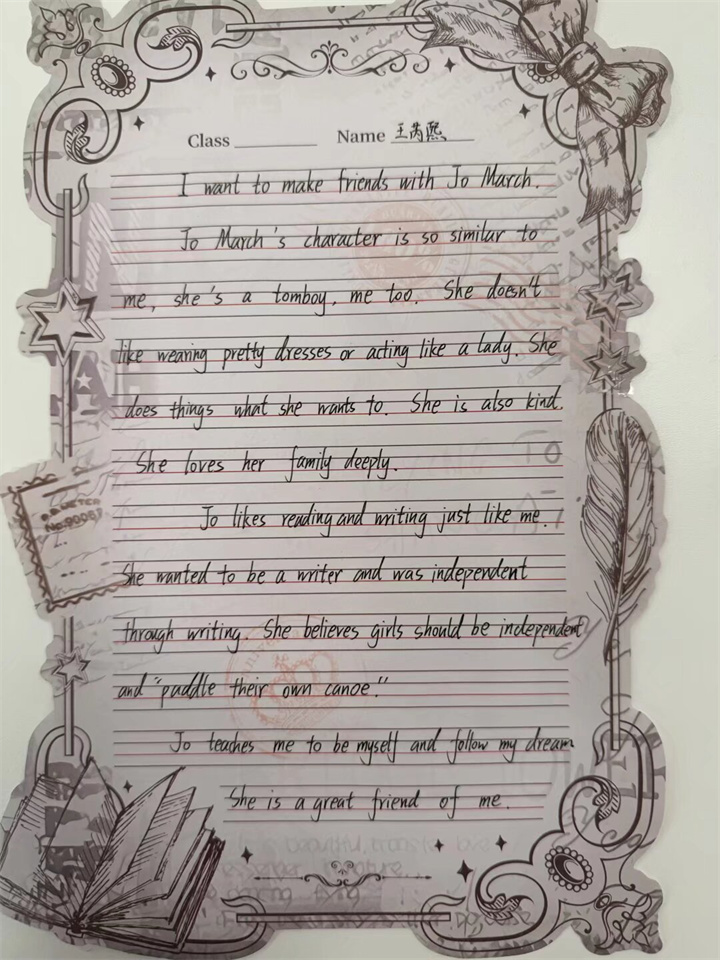 Class Name 王芮熙
I want to make friends with Jo March.
Jo March's character is so similar to
me, she's a tomboy, me too. She doesn't
like wearing pretty dresses or acting like a lady. She
does things what she wants to. She is also kind.
She loves her family deeply.
Jo likes reading and writing just like me.
She wanted to be a writer and was independent
through writing. She believes girls should be independent
and "paddle their own canoe."
Jo teaches me to be myself and follow my dream
She is a great friend of me.